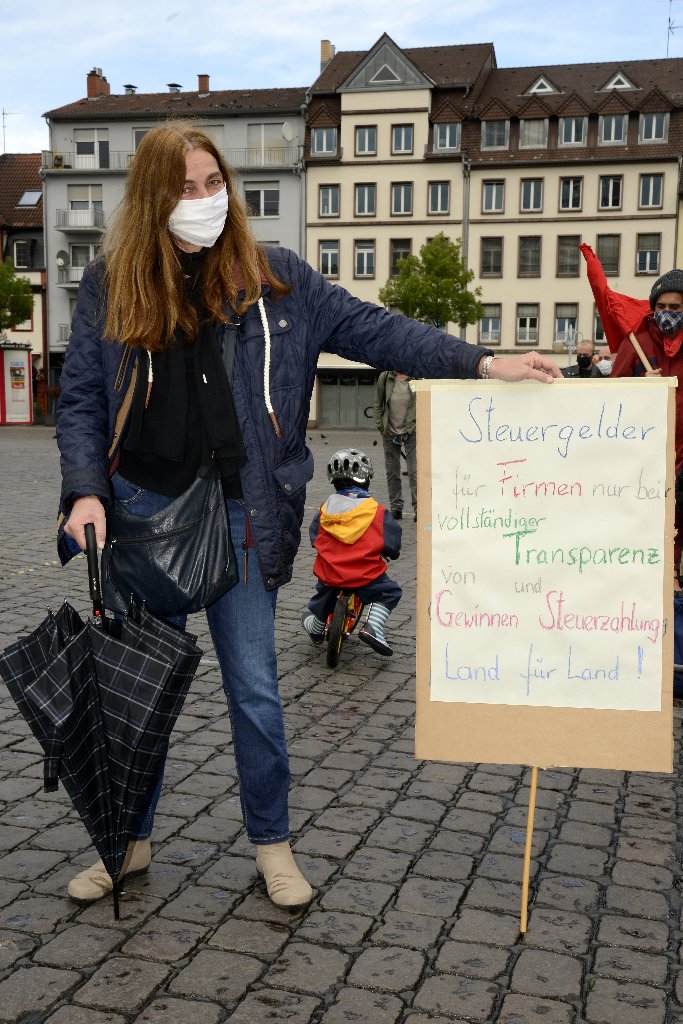 Steuergelder
für Firmen nur bei
vollständiger
Transparenz
von und
Gewinnen Steuerzahlung
Land für Land!